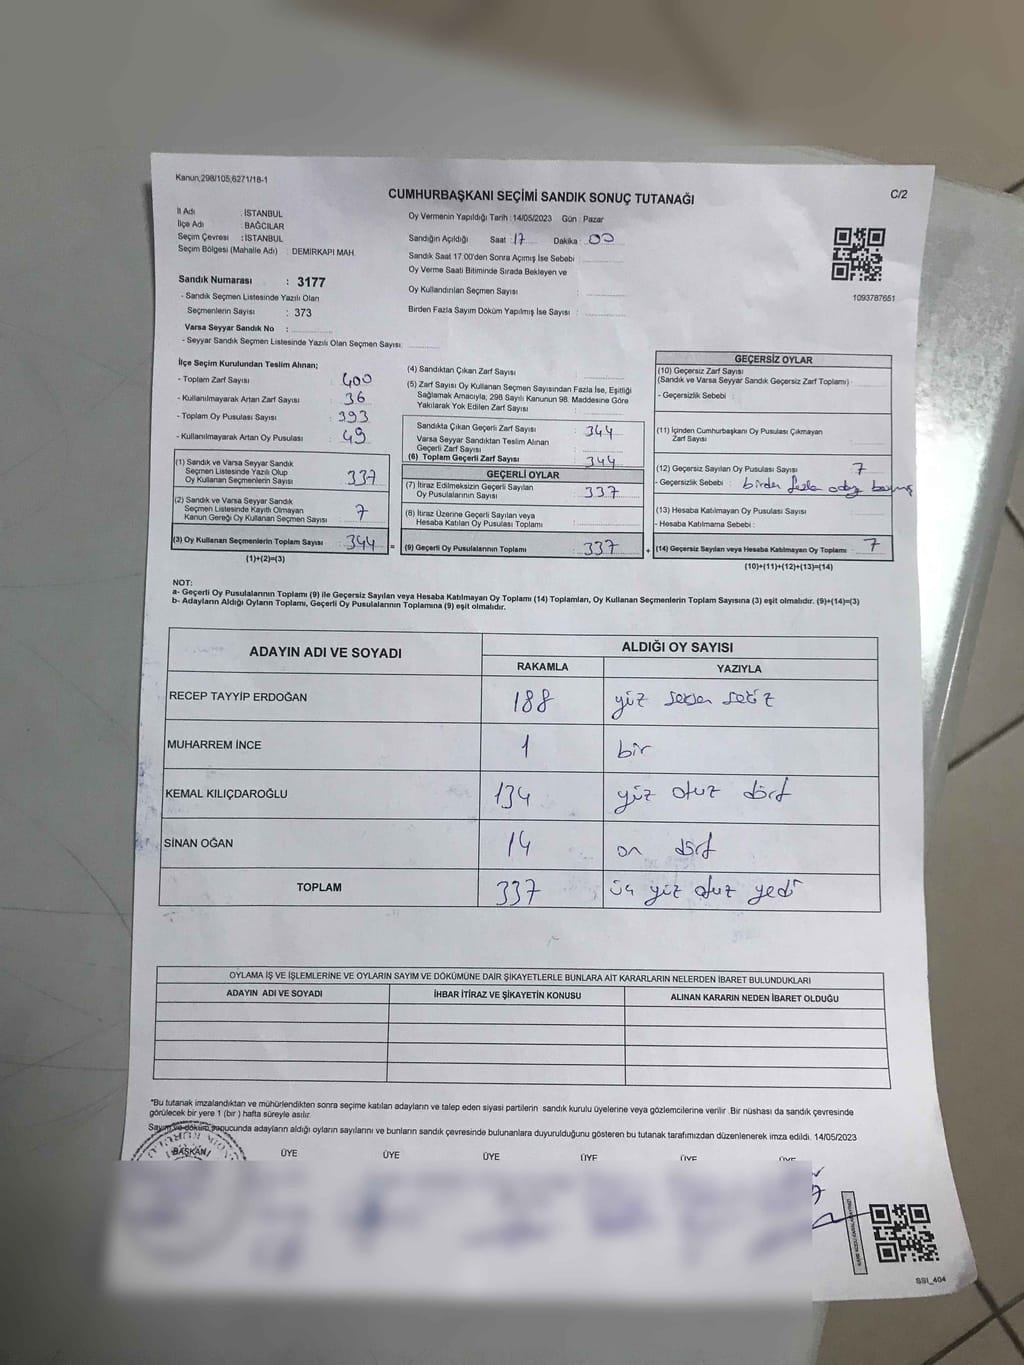 Kanun,298/105,6271/18-1
CUMHURBAŞKANI SEÇİMİ SANDIK SONUÇ TUTANAĞI
C/2
İl Adı : İSTANBUL
İlçe Adı : BAĞCILAR
Seçim Çevresi : İSTANBUL
Seçim Bölgesi (Mahalle Adı) : DEMİRKAPI MAH.
Sandık Numarası : 3177
- Sandık Seçmen Listesinde Yazılı Olan
Seçmenlerin Sayısı : 373
Varsa Seyyar Sandık No :
- Seyyar Sandık Seçmen Listesinde Yazılı Olan Seçmen Sayısı:
Oy Vermenin Yapıldığı Tarih : 14/05/2023 Gün : Pazar
Sandığın Açıldığı Saat : 17 Dakika : 00
Sandık Saat 17.00'den Sonra Açımış İse Sebebi :
Oy Verme Saati Bitiminde Sırada Bekleyen ve
Oy Kullandırılan Seçmen Sayısı :
Birden Fazla Sayım Döküm Yapılmış İse Sayısı :
1093787651
İlçe Seçim Kurulundan Teslim Alınan;
- Toplam Zarf Sayısı : 400
- Kullanılmayarak Artan Zarf Sayısı : 36
- Toplam Oy Pusulası Sayısı : 393
- Kullanılmayarak Artan Oy Pusulası : 49
(1) Sandık ve Varsa Seyyar Sandık
Seçmen Listesinde Yazılı Olup
Oy Kullanan Seçmenlerin Sayısı : 337
(2) Sandık ve Varsa Seyyar Sandık
Seçmen Listesinde Kayıtlı Olmayan
Kanun Gereği Oy Kullanan Seçmen Sayısı : 7
(3) Oy Kullanan Seçmenlerin Toplam Sayısı : 344 =
(1)+(2)=(3)
(4) Sandıktan Çıkan Zarf Sayısı :
(5) Zarf Sayısı Oy Kullanan Seçmen Sayısından Fazla İse, Eşitliği
Sağlamak Amacıyla, 298 Sayılı Kanunun 98. Maddesine Göre
Yakılarak Yok Edilen Zarf Sayısı :
Sandıkta Çıkan Geçerli Zarf Sayısı : 344
Varsa Seyyar Sandıktan Teslim Alınan
Geçerli Zarf Sayısı :
(6) Toplam Geçerli Zarf Sayısı : 344
GEÇERLİ OYLAR
(7) İtiraz Edilmeksizin Geçerli Sayılan
Oy Pusulalarının Sayısı : 337
(8) İtiraz Üzerine Geçerli Sayılan veya
Hesaba Katılan Oy Pusulası Toplamı :
(9) Geçerli Oy Pusulalarının Toplamı : 337 +
GEÇERSİZ OYLAR
(10) Geçersiz Zarf Sayısı
(Sandık ve Varsa Seyyar Sandık Geçersiz Zarf Toplamı) :
- Geçersizlik Sebebi :
(11) İçinden Cumhurbaşkanı Oy Pusulası Çıkmayan
Zarf Sayısı :
(12) Geçersiz Sayılan Oy Pusulası Sayısı : 7
- Geçersizlik Sebebi : birden fazla aday
(13) Hesaba Katılmayan Oy Pusulası Sayısı :
- Hesaba Katılmama Sebebi :
(14) Geçersiz Sayılan veya Hesaba Katılmayan Oy Toplamı : 7
(10)+(11)+(12)+(13)=(14)
NOT:
a- Geçerli Oy Pusulalarının Toplamı (9) ile Geçersiz Sayılan veya Hesaba Katılmayan Oy Toplamı (14) Toplamları, Oy Kullanan Seçmenlerin Toplam Sayısına (3) eşit olmalıdır. (9)+(14)=(3)
b- Adayların Aldığı Oyların Toplamı, Geçerli Oy Pusulalarının Toplamına (9) eşit olmalıdır.
ADAYIN ADI VE SOYADI
ALDIĞI OY SAYISI
RAKAMLA YAZIYLA
RECEP TAYYİP ERDOĞAN 188 yüz seksen sekiz
MUHARREM İNCE 1 bir
KEMAL KILIÇDAROĞLU 134 yüz otuz dört
SİNAN OĞAN 14 on dört
TOPLAM 337 üç yüz otuz yedi
OYLAMA İŞ VE İŞLEMLERİNE VE OYLARIN SAYIM VE DÖKÜMÜNE DAİR ŞİKAYETLERLE BUNLARA AİT KARARLARIN NELERDEN İBARET BULUNDUKLARI
ADAYIN ADI VE SOYADI İHBAR İTİRAZ VE ŞİKAYETİN KONUSU ALINAN KARARIN NEDEN İBARET OLDUĞU
*Bu tutanak imzalandıktan ve mühürlendikten sonra seçime katılan adayların ve talep eden siyasi partilerin sandık kurulu üyelerine veya gözlemcilerine verilir. Bir nüshası da sandık çevresinde
görülecek bir yere 1 (bir) hafta süreyle asılır.
Sayım ve döküm sonucunda adayların aldığı oyların sayılarını ve bunların sandık çevresinde bulunanlara duyurulduğunu gösteren bu tutanak tarafımızdan düzenlenerek imza edildi. 14/05/2023
BAŞKAN ÜYE ÜYE ÜYE ÜYE ÜYE ÜYE
SSI_404